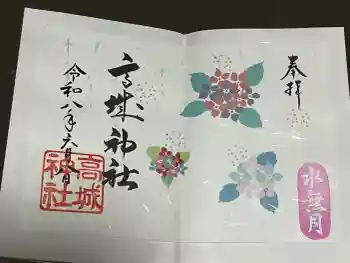 奉拝
水無月
高城神社
令和八年六月
高城神社